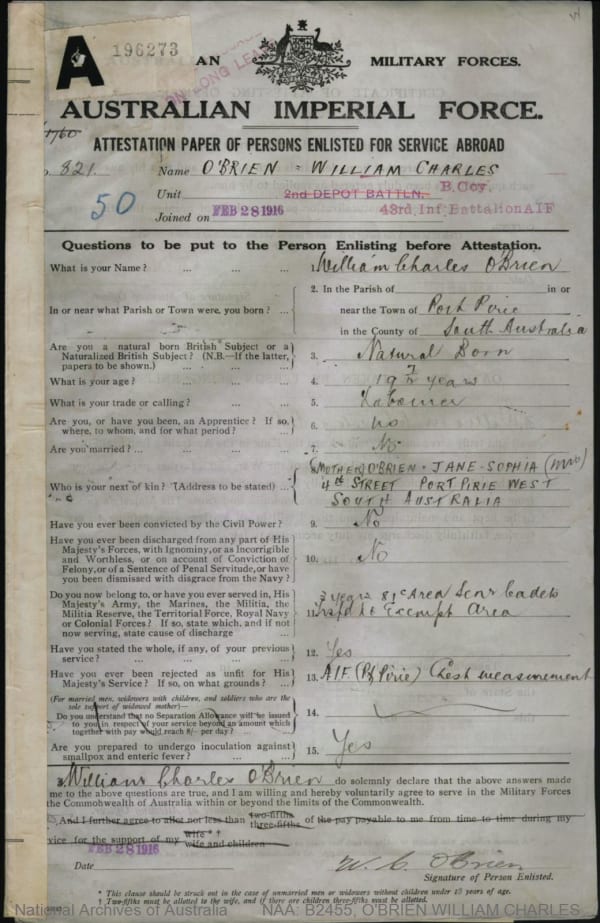 A 196273
AN MILITARY FORCES.
AUSTRALIAN IMPERIAL FORCE.
1760
ATTESTATION PAPER OF PERSONS ENLISTED FOR SERVICE ABROAD
821. Name O'BRIEN = WILLIAM CHARLES
Unit 2nd DEPOT BATTLN. B.Coy.
50 Joined on FEB 28 1916 43rd Inf. Battalion AIF
Questions to be put to the Person Enlisting before Attestation.
What is your Name? ... ... ... 1. William Charles O'Brien
2. In the Parish of in or
In or near what Parish or Town were you born? ... near the Town of Port Pirie
in the County of South Australia
Are you a natural born British Subject or a
Naturalized British Subject? (N.B.—If the latter, 3. Natural Born
papers to be shown.) ... ... ...
What is your age? ... ... ... 4. years
What is your trade or calling? ... ... 5. Labourer
Are you, or have you been, an Apprentice? If so, 6. no
where, to whom, and for what period? ...
Are you married? ... ... ... 7. No
8. MOTHER) O'BRIEN - JANE - SOPHIA (MRS)
Who is your next of kin? (Address to be stated) ... 4th STREET PORT PIRIE WEST
SOUTH AUSTRALIA
Have you ever been convicted by the Civil Power? 9. No
Have you ever been discharged from any part of His
Majesty's Forces, with Ignominy, or as Incorrigible
and Worthless, or on account of Conviction of 10. No
Felony, or of a Sentence of Penal Servitude, or have
you been dismissed with disgrace from the Navy?
Do you now belong to, or have you ever served in, His years 81c Area Senr Cadets
Majesty's Army, the Marines, the Militia, the
Militia Reserve, the Territorial Force, Royal Navy 11. to Exempt Area
or Colonial Forces? If so, state which, and if not
now serving, state cause of discharge ...
Have you stated the whole, if any, of your previous 12. Yes
service? ... ... ... ...
Have you ever been rejected as unfit for His 13. AIF (Pt Pirie) Chest measurement
Majesty's Service? If so, on what grounds? ...
(For married men, widowers with children, and soldiers who are the
sole support of widowed mother)—
Do you understand that no Separation Allowance will be issued 14.
to you in respect of your service beyond an amount which
together with pay would reach 8/- per day? ...
Are you prepared to undergo inoculation against 15. Yes
smallpox and enteric fever? ... ...
William Charles O'Brien do solemnly declare that the above answers made
me to the above questions are true, and I am willing and hereby voluntarily agree to serve in the Military Forces
the Commonwealth of Australia within or beyond the limits of the Commonwealth.
And I further agree to allot not less than two-fifths three-fifths of the pay payable to me from time to time during my
vice for the support of my wife* † wife and children
FEB 28 1916
Date W. C. O'Brien
Signature of Person Enlisted.
* This clause should be struck out in the case of unmarried men or widowers without children under 18 years of age.
† Two-fifths must be allotted to the wife, and if there are children three-fifths must be allotted.
National Archives of Australia NAA: B2455, O'BRIEN WILLIAM CHARLES